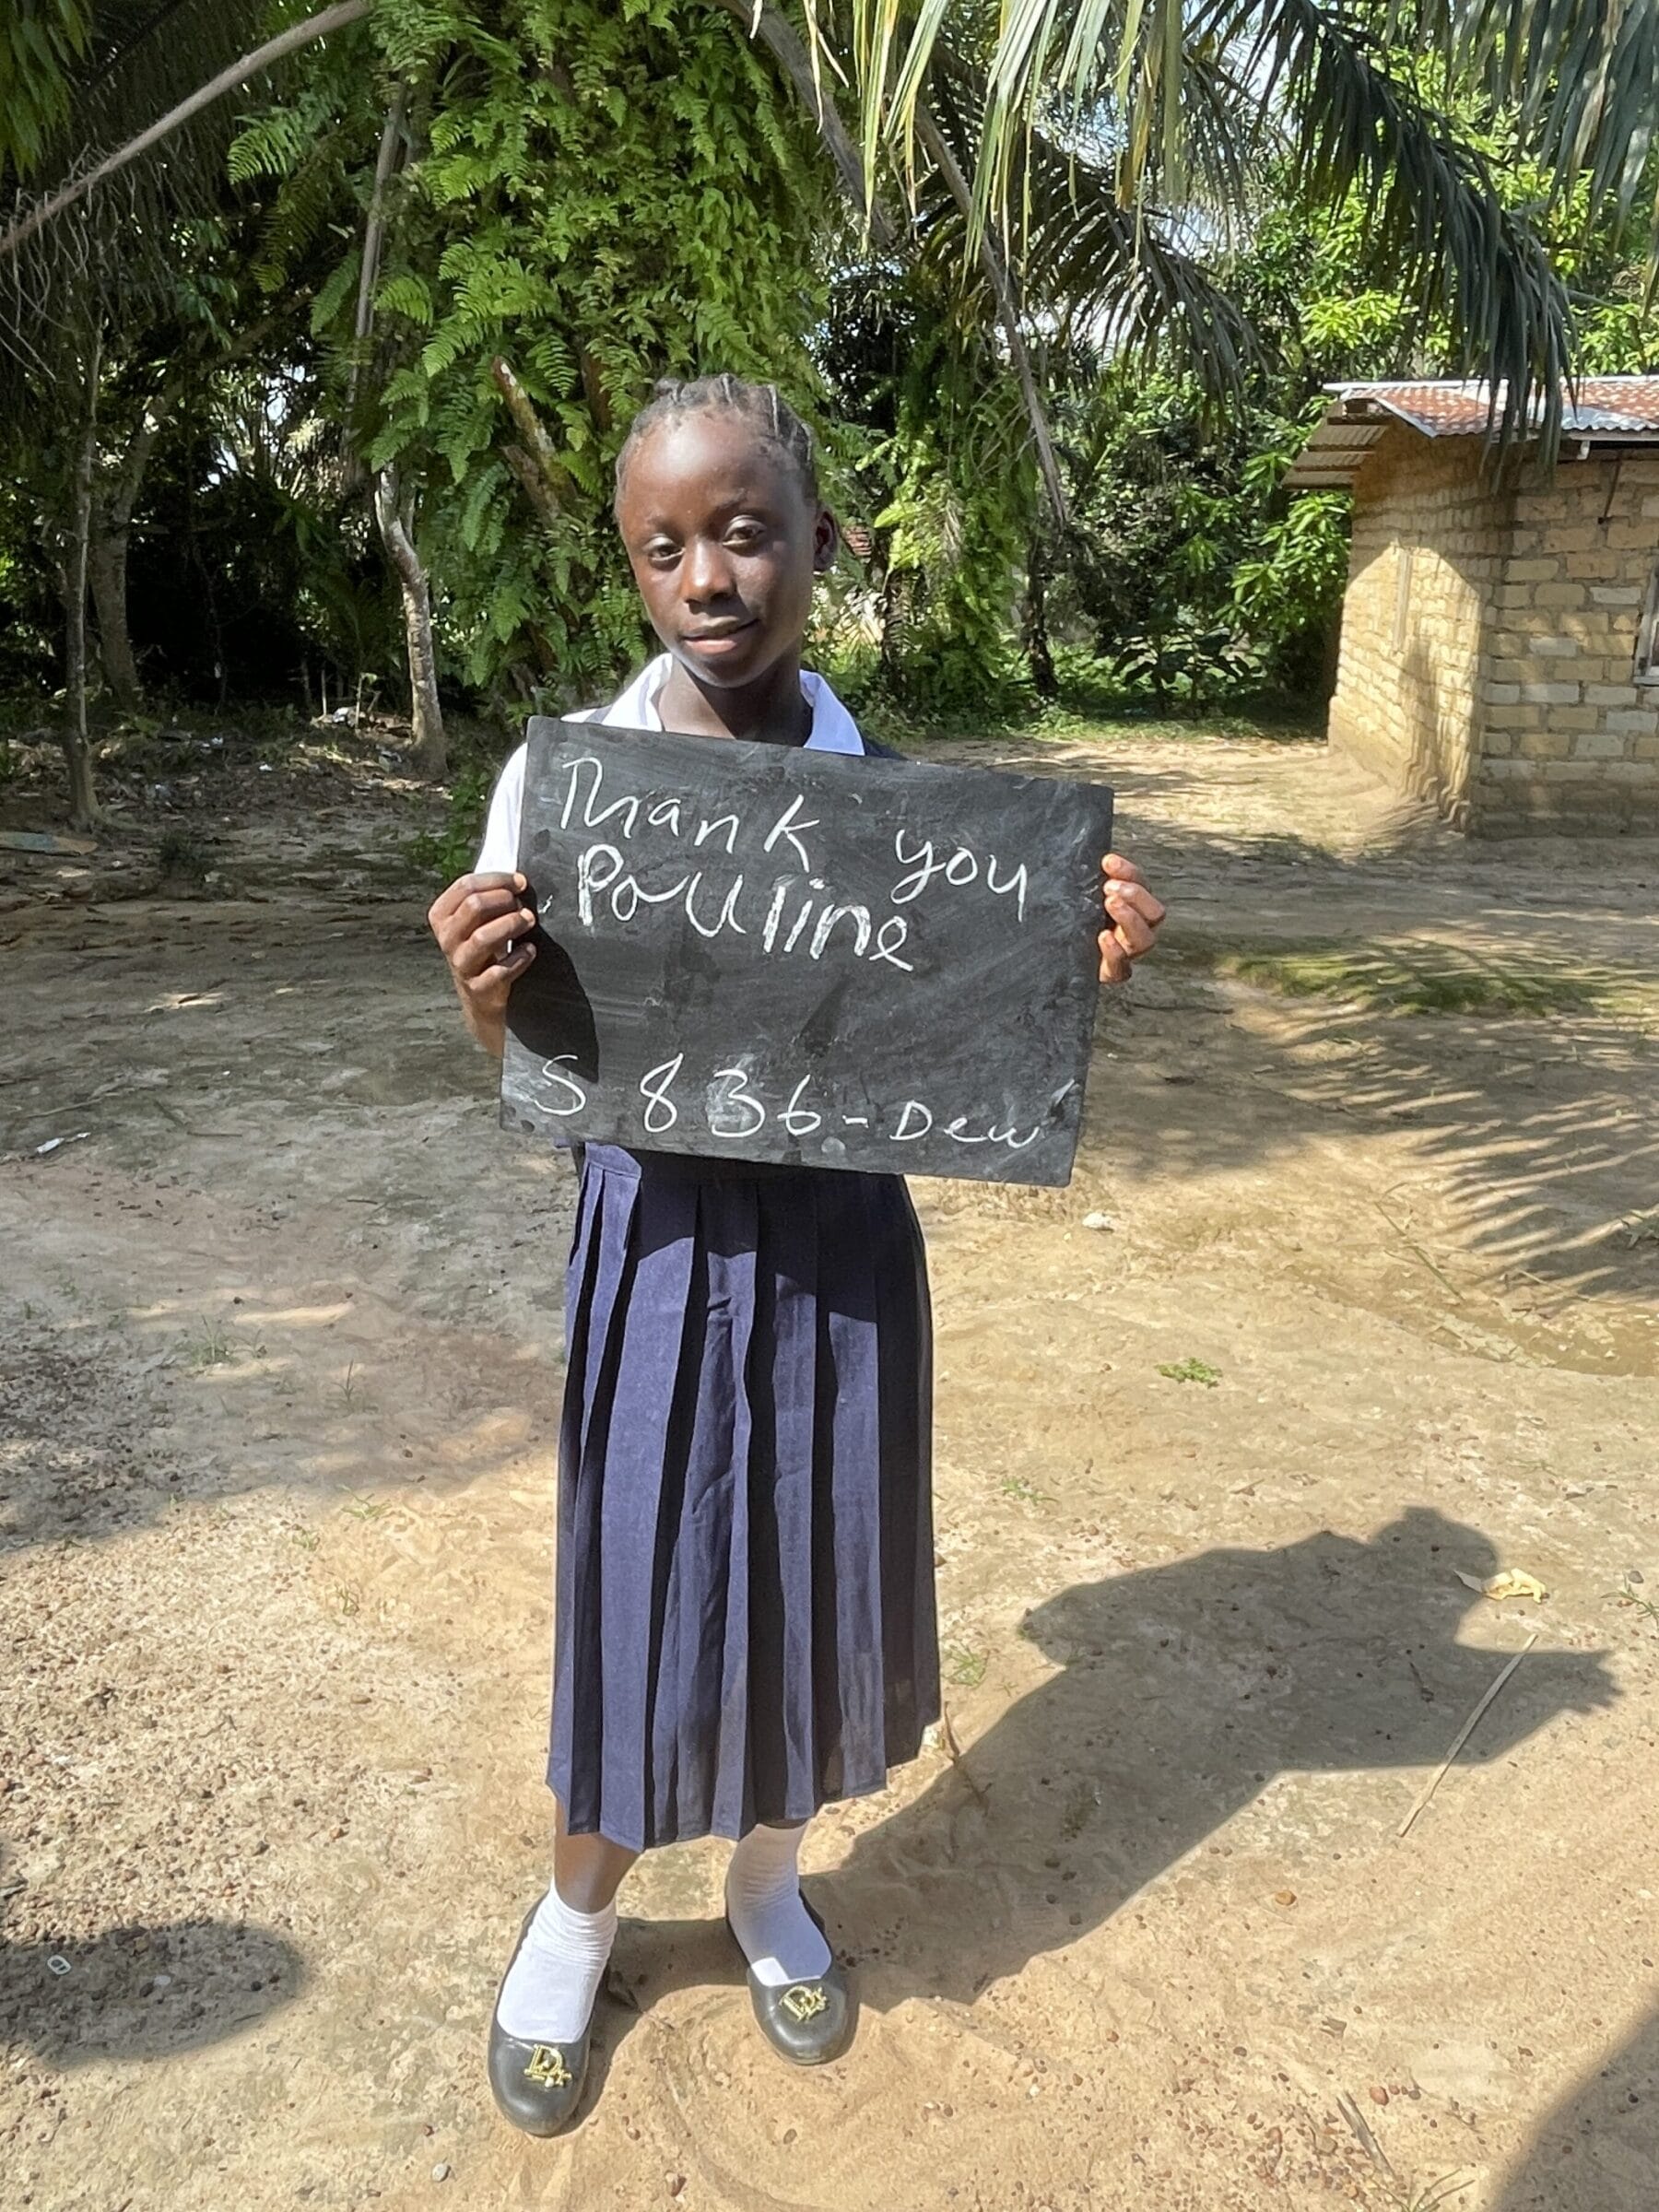 Thank you
Pauline
S 836-Dew